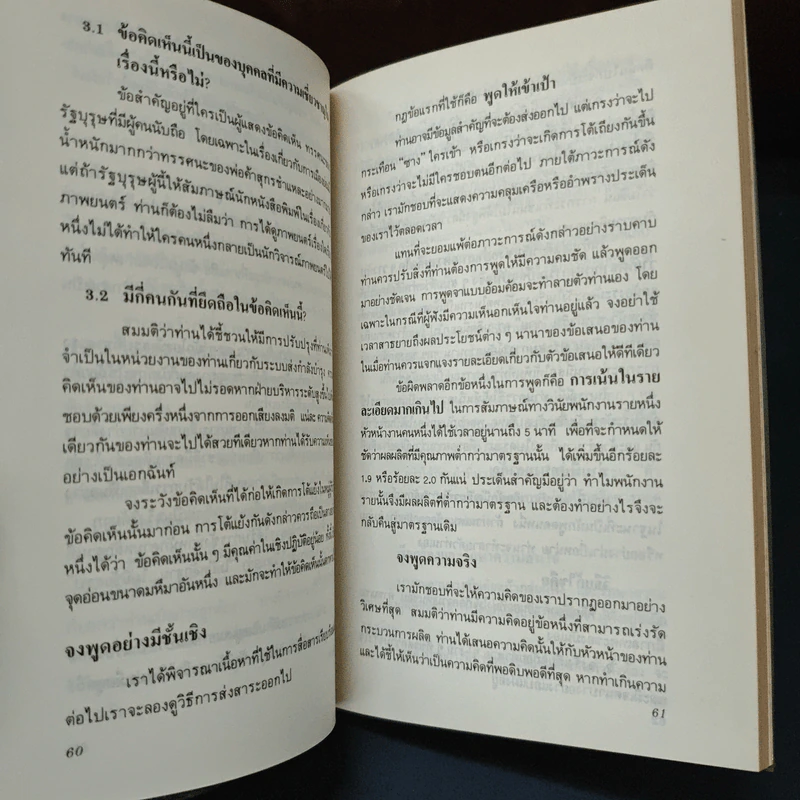 3.1 ข้อคิดเห็นนี้เป็นของบุคคลที่มีความเชี่ยวชาญใน
เรื่องนี้หรือไม่?
ข้อสำคัญอยู่ที่ใครเป็นผู้แสดงข้อคิดเห็น
รัฐบุรุษที่มีผู้คนนับถือ โดยเฉพาะในเรื่องเกี่ยวกับการเมือง
น้ำหนักมากกว่าทรรศนะของพ่อค้าสุกรชำแหละ
แต่ถ้ารัฐบุรุษผู้นี้ให้สัมภาษณ์นักหนังสือพิมพ์ในเรื่องเกี่ยว
ภาพยนตร์ ท่านก็ต้องไม่ลืมว่า การได้ดูภาพยนตร์เรื่อง
หนึ่งไม่ได้ทำให้ใครคนหนึ่งกลายเป็นนักวิจารณ์ภาพยนตร์
ทันที
3.2 มีกี่คนกันที่ยึดถือในข้อคิดเห็นนี้?
สมมติว่าท่านได้ชี้ชวนให้มีการปรับปรุงที่ท่าน
จำเป็นในหน่วยงานของท่านเกี่ยวกับระบบส่งกำลังบำรุง
คิดเห็นของท่านอาจไปไม่รอดหากฝ่ายบริหารระดับสูง
ชอบด้วยเพียงครึ่งหนึ่งจากการออกเสียงลงมติ แน่ละ ความคิด
เดียวกันของท่านจะไปได้สวยทีเดียวหากท่านได้รับความ
อย่างเป็นเอกฉันท์
จงระวังข้อคิดเห็นที่ได้ก่อให้เกิดการโต้แย้งใน
ข้อคิดเห็นนั้นมาก่อน การโต้แย้งกันดังกล่าวควรถือเป็น
หนึ่งได้ว่า ข้อคิดเห็นนั้น ๆ มีคุณค่าในเชิงปฏิบัติอยู่น้อย
จุดอ่อนขนาดมหึมาอันหนึ่ง และมักจะทำให้ข้อคิดเห็นนั้น
จงพูดอย่างมีชั้นเชิง
เราได้พิจารณาเนื้อหาที่ใช้ในการสื่อสาร
ต่อไปเราจะลองดูวิธีการส่งสาระออกไป
60
กฎข้อแรกที่ใช้ก็คือ พูดให้เข้าเป้า
ท่านอาจมีข้อมูลสำคัญที่จะต้องส่งออกไป แต่เกรงว่าจะไป
กระเทือน “ซาง” ใครเข้า หรือเกรงว่าจะเกิดการโต้เถียงกันขึ้น
หรือเกรงว่าจะไม่มีใครชอบตนอีกต่อไป ภายใต้ภาวะการณ์ดัง
กล่าว เรามักชอบที่จะแสดงความคลุมเครือหรืออำพรางประเด็น
ของเราไว้ตลอดเวลา
แทนที่จะยอมแพ้ต่อภาวะการณ์ดังกล่าวอย่างราบคาบ
ท่านควรปรับสิ่งที่ท่านต้องการพูดให้มีความคมชัด แล้วพูดออก
มาอย่างชัดเจน การพูดจาแบบอ้อมค้อมจะทำลายตัวท่านเอง โดย
เฉพาะในกรณีที่ผู้ฟังมีความเห็นอกเห็นใจท่านอยู่แล้ว จงอย่าใช้
เวลาสาธยายถึงผลประโยชน์ต่าง ๆ นานาของข้อเสนอของท่าน
ในเมื่อท่านควรแจกแจงรายละเอียดเกี่ยวกับตัวข้อเสนอให้ดีทีเดียว
ข้อผิดพลาดอีกข้อหนึ่งในการพูดก็คือ การเน้นในราย
ละเอียดมากเกินไป ในการสัมภาษณ์ทางวินัยพนักงานรายหนึ่ง
หัวหน้างานคนหนึ่งได้ใช้เวลาอยู่นานถึง 5 นาที เพื่อที่จะกำหนดให้
ชัดว่าผลผลิตที่มีคุณภาพต่ำกว่ามาตรฐานนั้น ได้เพิ่มขึ้นอีกร้อยละ
1.9 หรือร้อยละ 2.0 กันแน่ ประเด็นสำคัญมีอยู่ว่า ทำไมพนักงาน
รายนั้นจึงมีผลผลิตที่ต่ำกว่ามาตรฐาน และต้องทำอย่างไรจึงจะ
กลับคืนสู่มาตรฐานเดิม
จงพูดความจริง
เรามักชอบที่จะให้ความคิดของเราปรากฏออกมาอย่าง
วิเศษที่สุด สมมติว่าท่านมีความคิดอยู่ข้อหนึ่งที่สามารถเร่งรัด
กระบวนการผลิต ท่านได้เสนอความคิดนั้นให้กับหัวหน้าของท่าน
และได้ชี้ให้เห็นว่าเป็นความคิดที่พอดิบพอดีที่สุด หากทำเกินความ
61